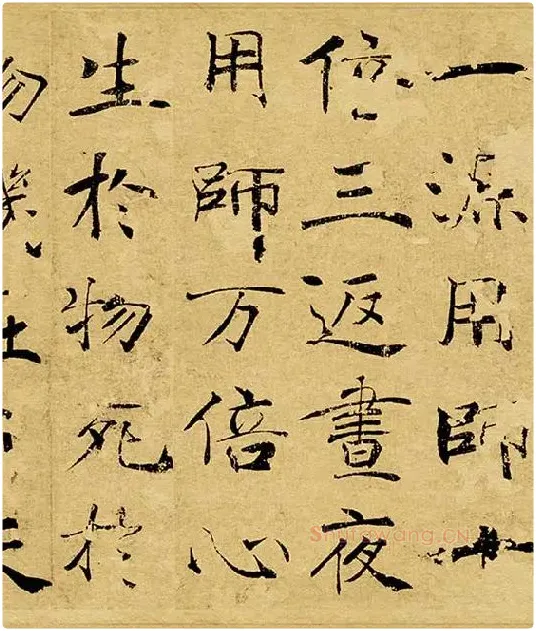 一源用師十
倍三返晝夜
用師万倍心
生於物死於
物機在天